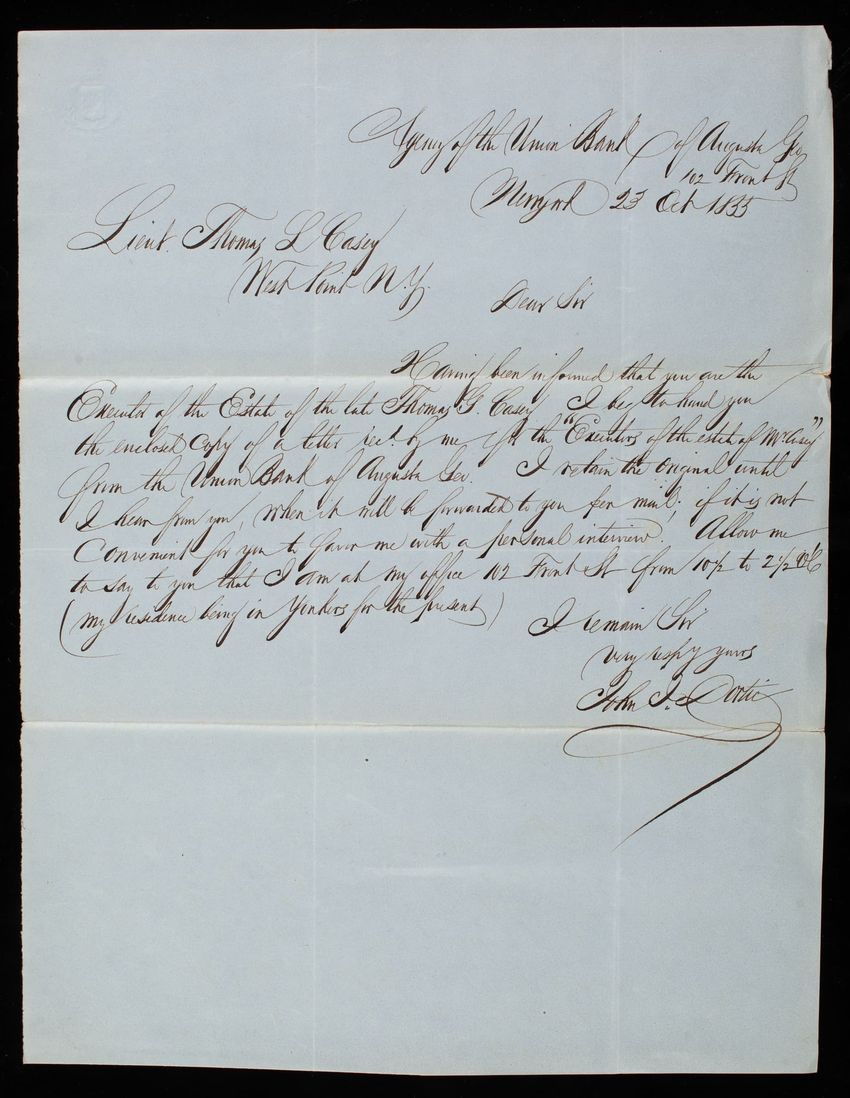 Agency of the Union Bank of Augusta Geo
102 Front St
Newyork 23 Oct 1855
Lieut. Thomas L Casey
West Point N.Y.
Dear Sir
Having been informed that you are the
Executor of the Estate of the late Thomas G. Casey I beg to hand you
the enclosed Copy of a letter recd. by me for the "Executors of the estate of Mr Casey"
from the Union Bank of Augusta Geo. I retain the original until
I hear from you, when it will be forwarded to you per mail; if it is not
Convenient for you to favor me with a personal interview. Allow me
to say to you that I am at my office 102 Front St from 10½ to 2½ O'C
(my residence being in Yonkers for the present)
I remain Sir
Very respy yours
John J.